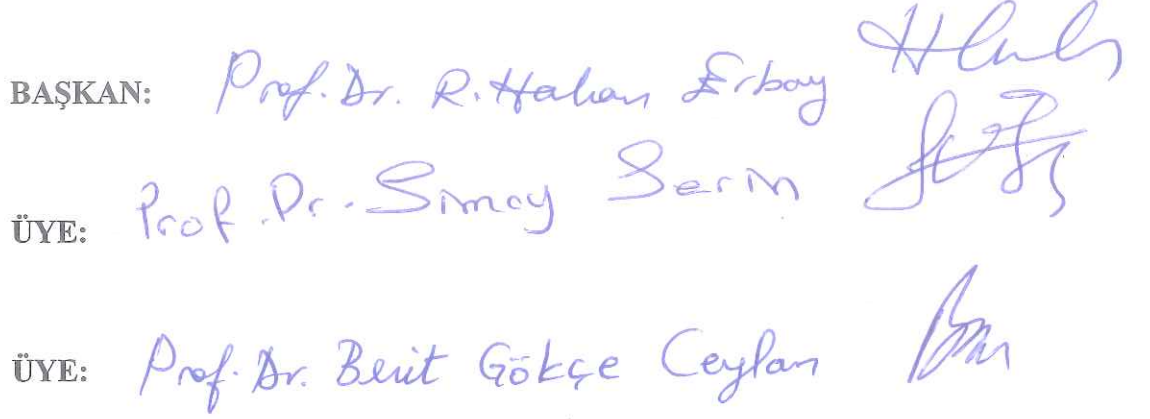 BAŞKAN: Prof. Dr. R. Hakan Erbay
ÜYE: Prof. Dr. Simay Serin
ÜYE: Prof. Dr. Berit Gökçe Ceylan